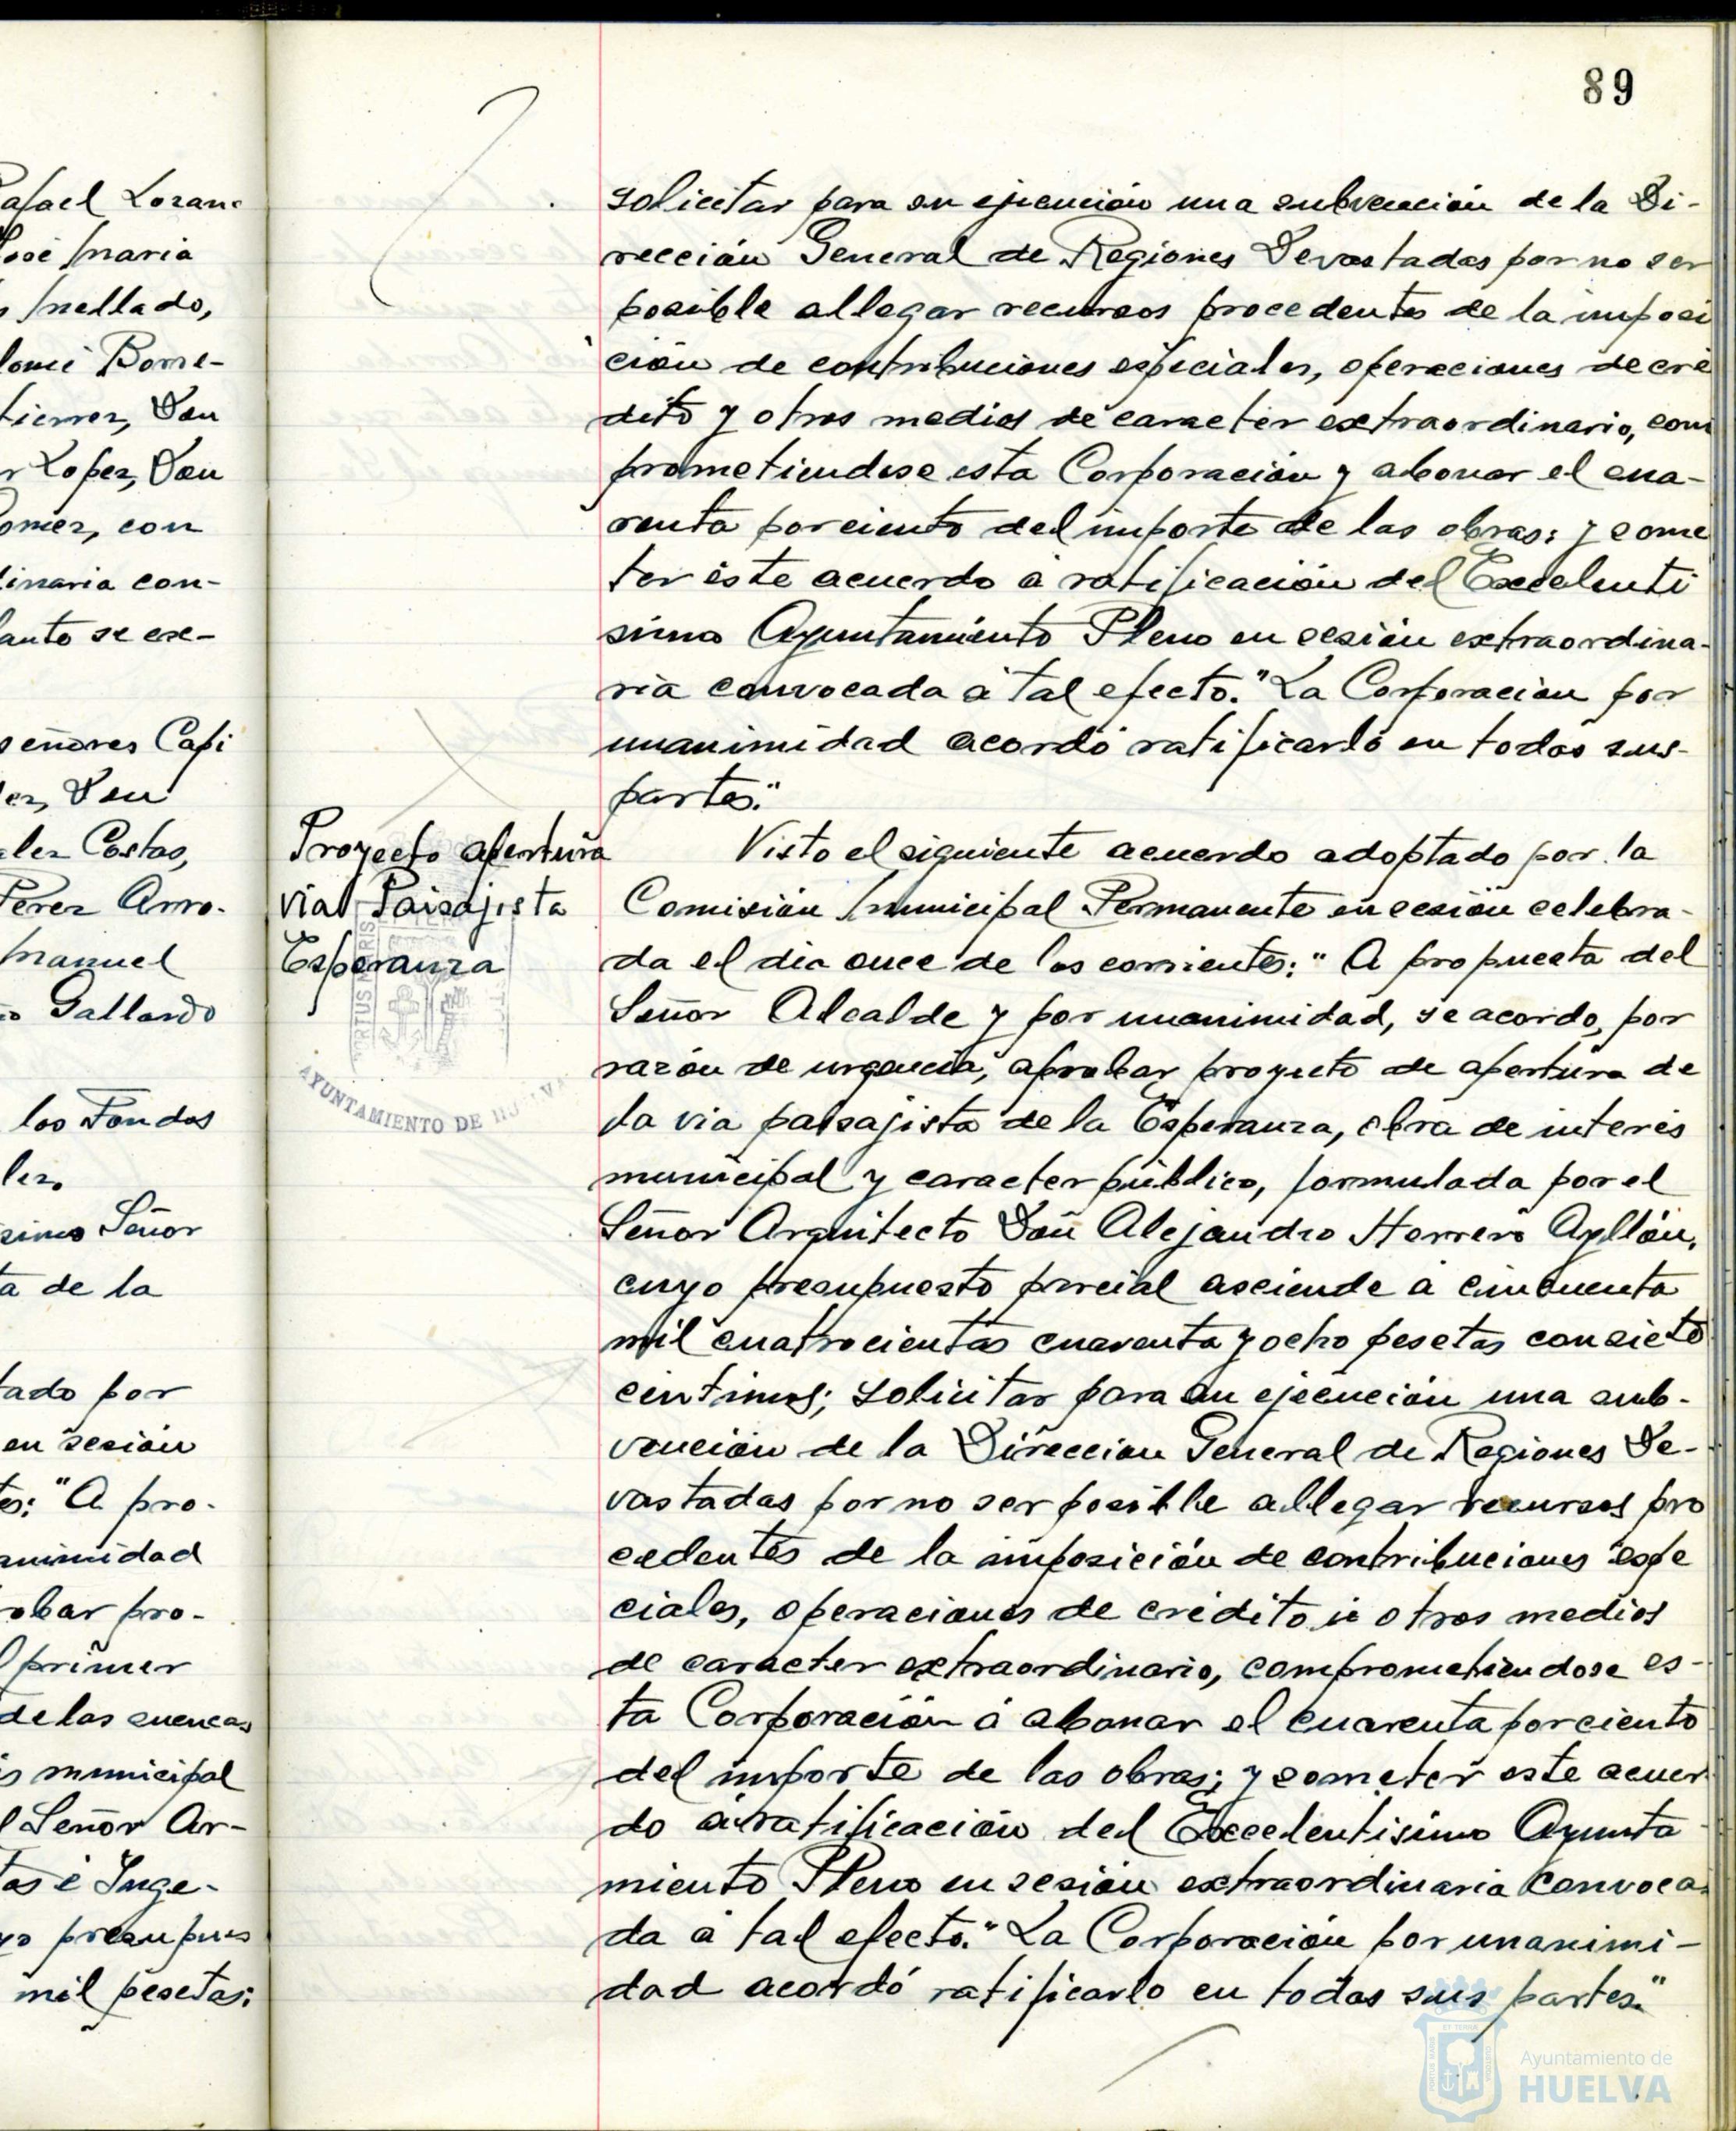 89
afael Lozano
José Maria
Mellado,
lomé Borre-
tierrez, Don
r Lopez, Don
omez, con
dinaria con-
anto se exe-
señores Capi
ez, Don
alez Costas,
Perez Arro-
Manuel
Gallardo
los Fondos
lez.
simo Señor
ta de la
tado por
en sesión
tes: "A pro-
animidad
robar pro-
primer
de las cuencas
s municipal
l Señor Ar-
tas é Inge-
yo presupues
mil pesetas;
solicitar para su ejecución una subvención de la Di-
rección General de Regiones Devastadas por no ser
posible allegar recursos procedentes de la imposi
ción de contribuciones especiales, operaciones de cré
dito y otros medios de caracter extraordinario, com
prometiendose esta Corporación y abonar el cua-
renta por ciento del importe de las obras; y some
ter éste acuerdo a ratificación del Excelenti
simo Ayuntamiento Pleno en sesión extraordina-
ria convocada a tal efecto." La Corporacion por
unanimidad acordó ratificarlo en todas sus-
partes."
Proyecto apertura
vial Paisajista
Esperanza
PORTUS MARIS
AYUNTAMIENTO DE HUELVA
Visto el siguiente acuerdo adoptado por la
Comisión Municipal Permanente en sesión celebra-
da el dia once de los corrientes: "A propuesta del
Señor Alcalde y por unanimidad, se acordo, por
razón de urgencia, aprobar proyecto de apertura de
la via paisajista de la Esperanza, obra de interés
municipal y caracter público, formulada por el
Señor Arquitecto Don Alejandro Herrero Ayllón,
cuyo presupuesto parcial asciende a cincuenta
mil cuatrocientas cuarenta y ocho pesetas con siete
centimos; solicitar para su ejecución una sub-
vención de la Direccion General de Regiones De-
vastadas por no ser posible allegar recursos pro
cedentes de la imposición de contribuciones espe
ciales, operaciones de crédito ú otros medios
de caracter extraordinario, comprometiendose es-
ta Corporación a abonar el cuarenta por ciento
del importe de las obras; y someter este acuer
do a ratificación del Excelentisimo Ayunta
miento Pleno en sesión extraordinaria convoca-
da a tal efecto." La Corporación por unanimi-
dad acordó ratificarlo en todas sus partes."
Ayuntamiento de
HUELVA